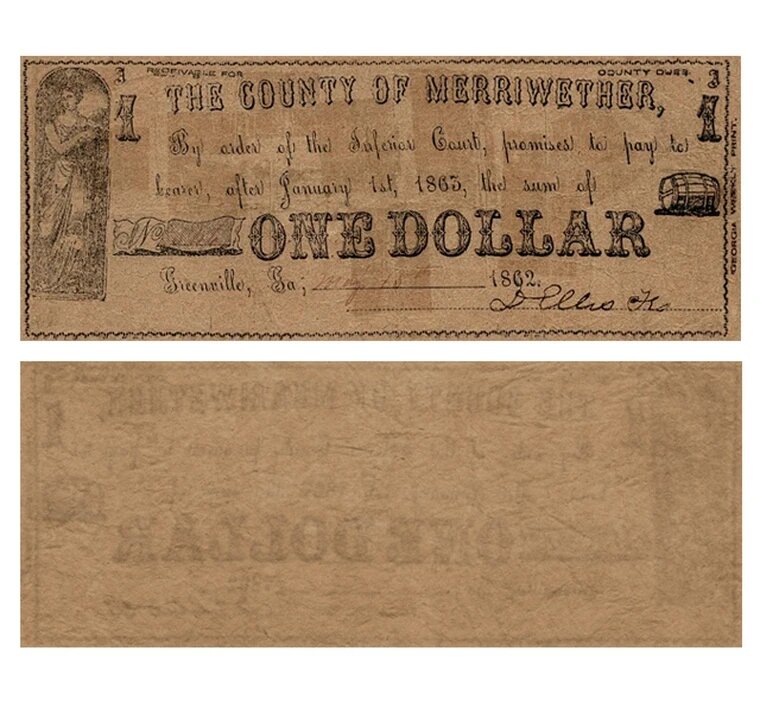 1 RECEIVABLE FOR COUNTY DUES 1
1 THE COUNTY OF MERRIWETHER, 1
By order of the Inferior Court, promises to pay to
bearer, after January 1st, 1863, the sum of
ONE DOLLAR
Greenville, Ga; 1862.
D Ellis
GEORGIA WEEKLY PRINT.